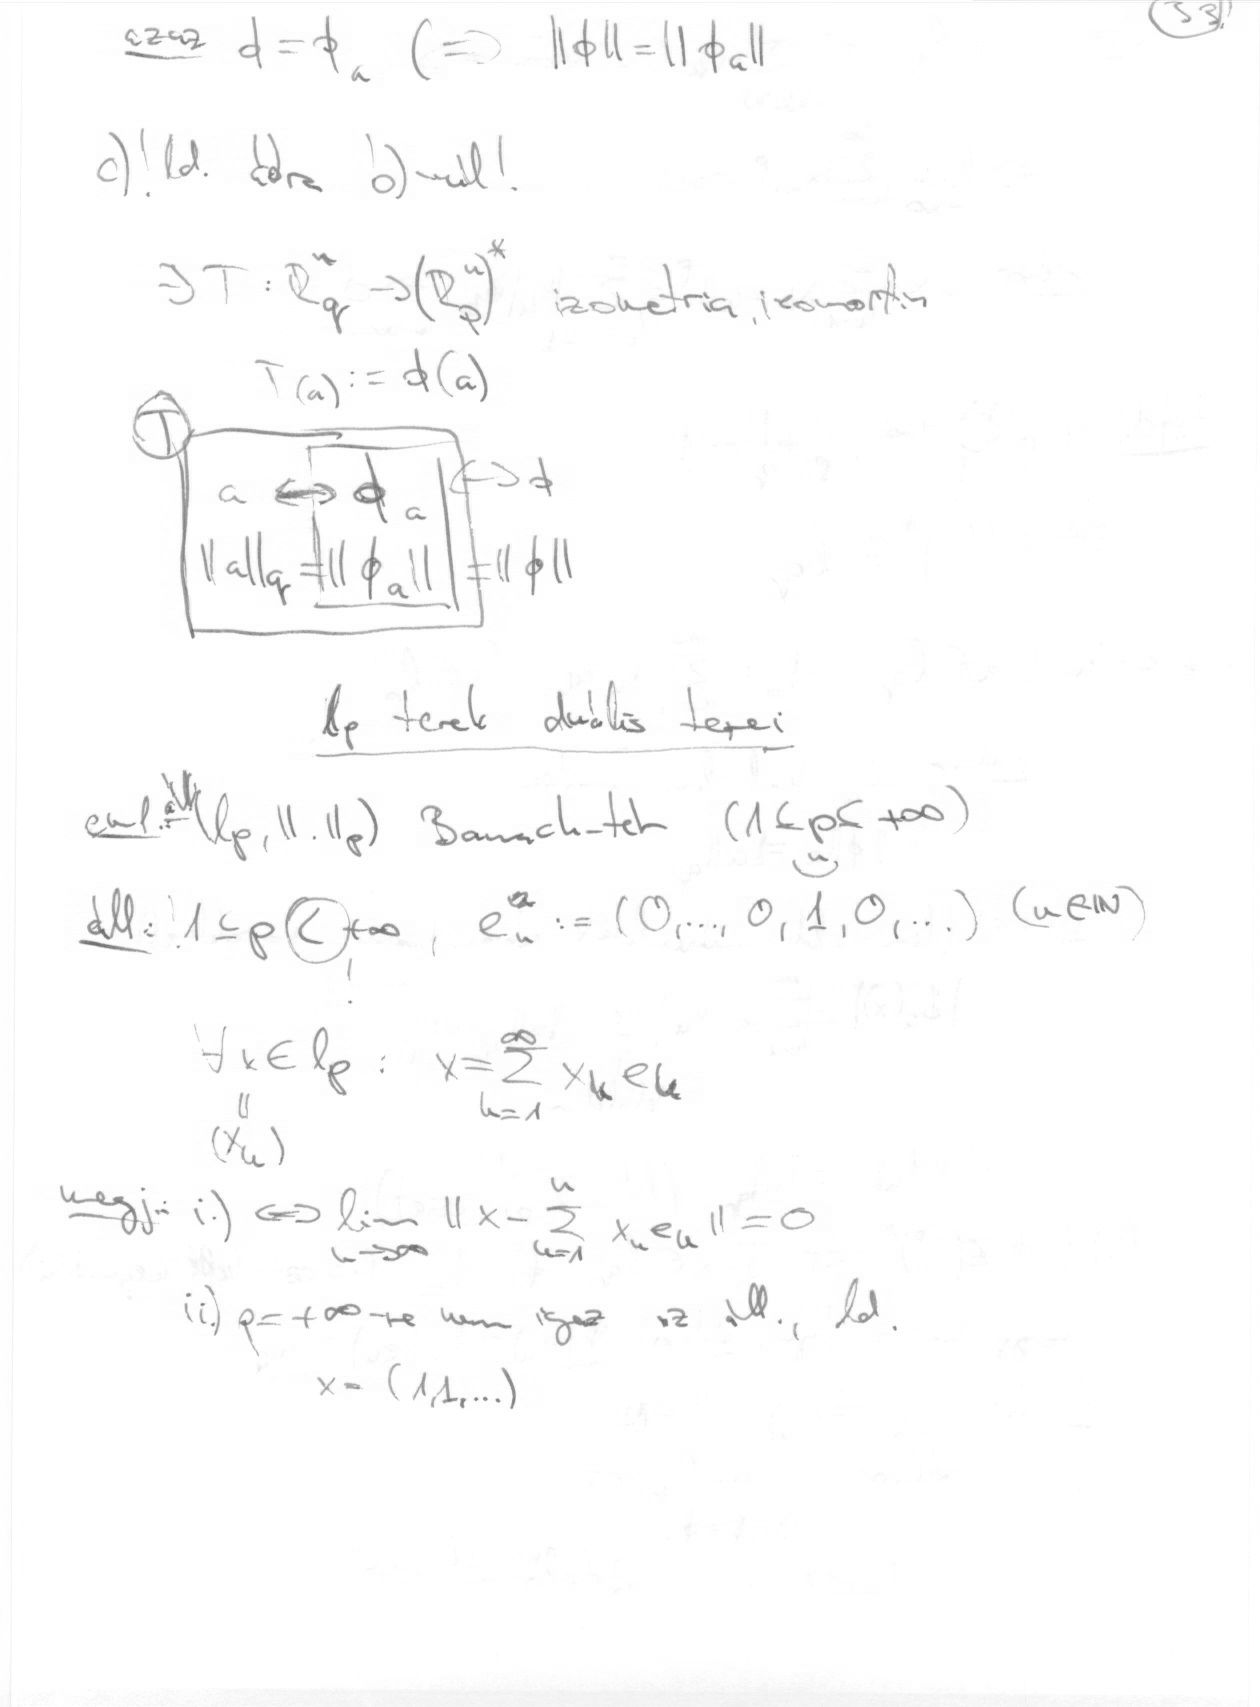 53
azaz ϕ = ϕ_a (⇒ ||ϕ|| = ||ϕ_a||
c)! ld. ábra b)-nél!
⇒ T : R^n_q → (R^n_p)^* izometria, izomorfia
T(a) := ϕ(a)
T
a ↔ ϕ_a ↔ ϕ
||a||_q = ||ϕ_a|| = ||ϕ||
l_p terek duális terei
eml.: (l_p, ||.||_p) Banach-tér (1 ≤ p ≤ +∞)
áll.: 1 ≤ p < +∞, e_n := (0,..., 0, 1, 0, ...) (n ∈ ℕ)
n
!
∀ x ∈ l_p : x = ∑_{k=1}^∞ x_k e_k
||
(x_k)
megj.: i.) ⇔ lim_{n→∞} || x - ∑_{k=1}^n x_k e_k || = 0
ii.) p = +∞-re nem igaz az áll., ld.
x = (1,1,...)